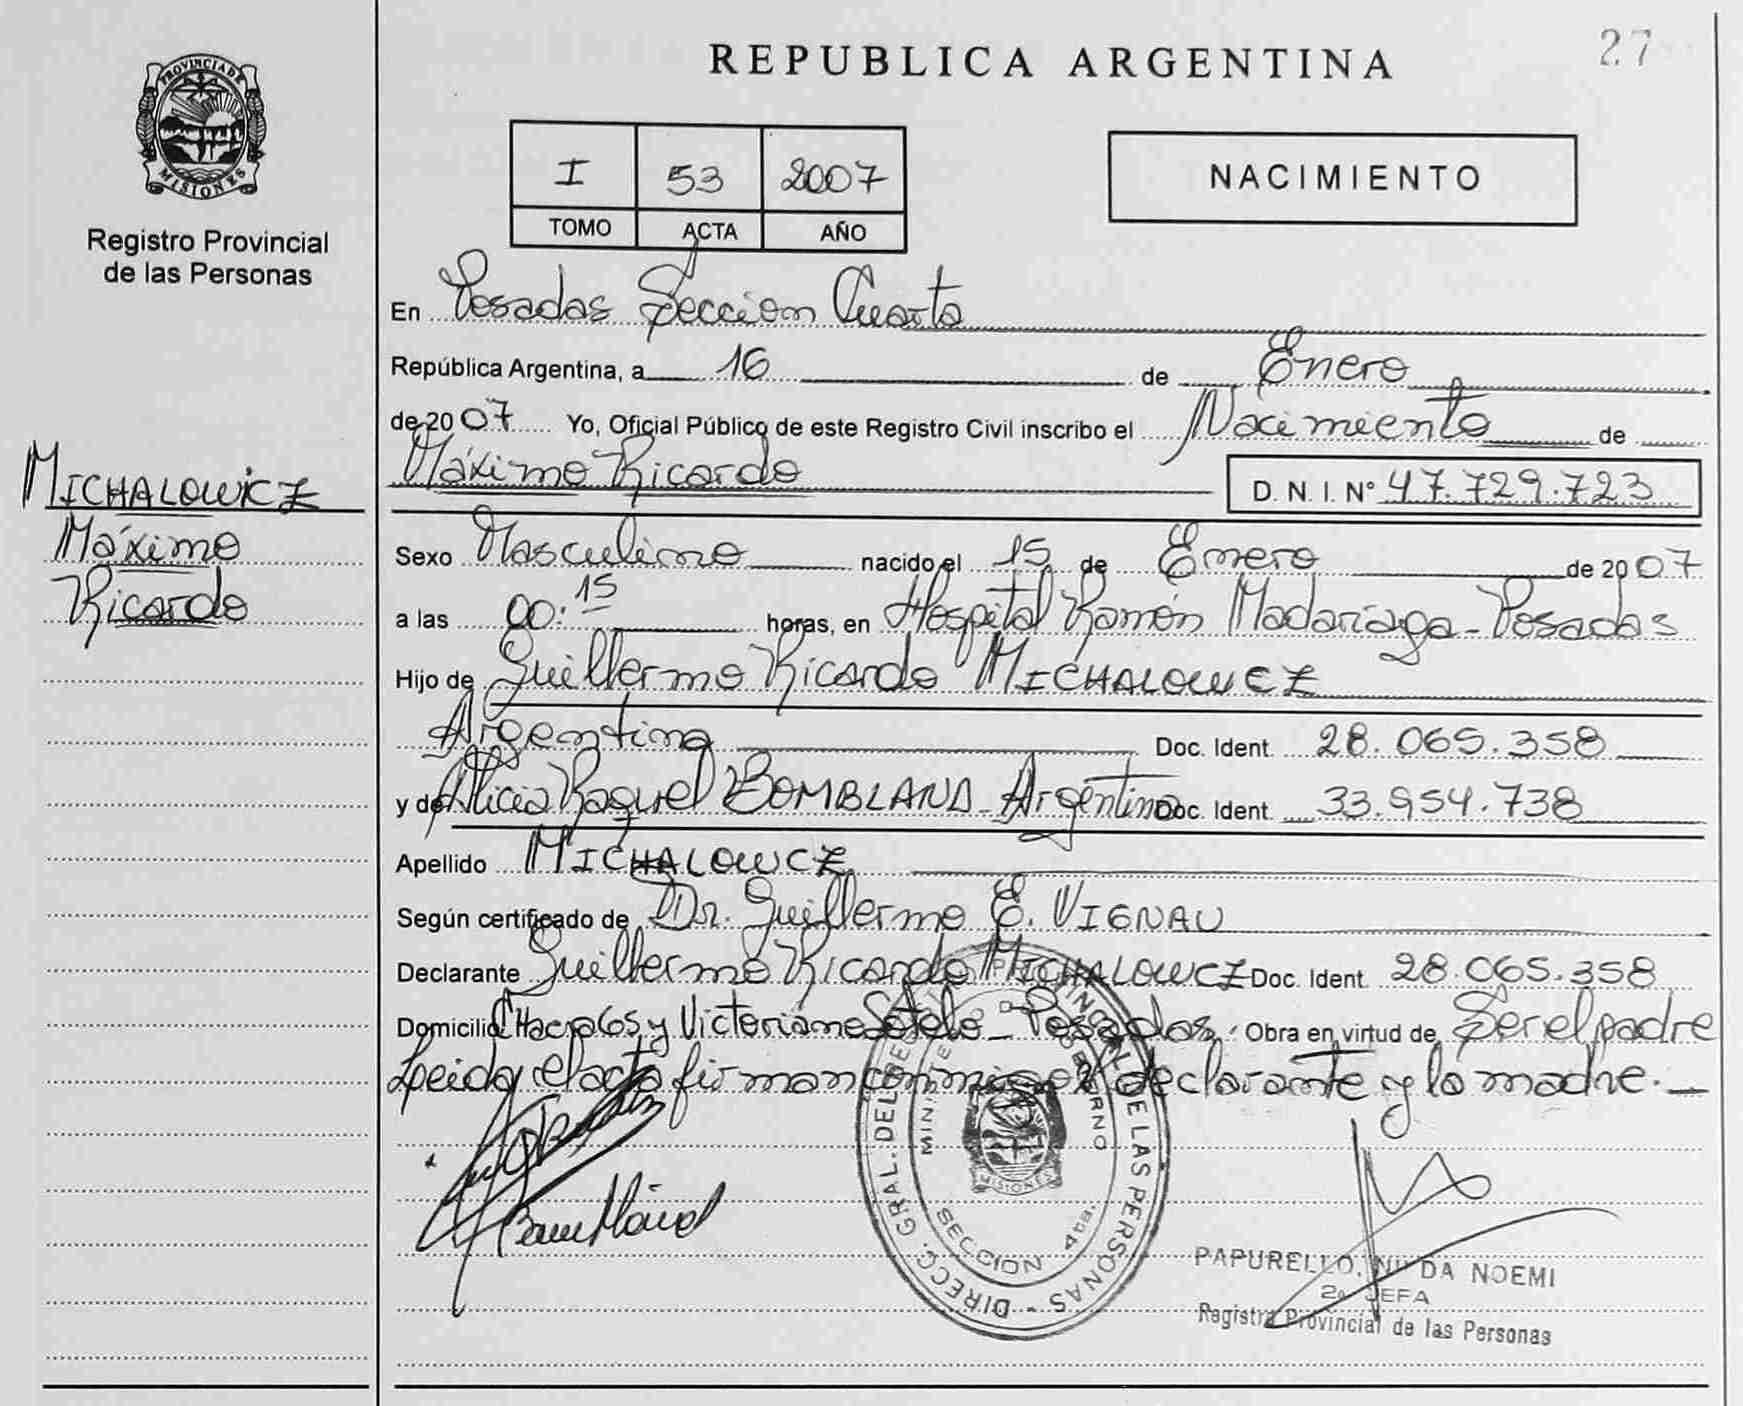 27
REPUBLICA ARGENTINA
PROVINCIA DE
MISIONES
Registro Provincial
de las Personas
I 53 2007
TOMO ACTA AÑO
NACIMIENTO
En Posadas Seccion Cuarta
República Argentina, a 16 de Enero
de 2007 Yo, Oficial Público de este Registro Civil inscribo el Nacimiento de
Máximo Ricardo D. N. I. N° 47.729.723
MICHALOWICZ
Máximo
Ricardo
Sexo Masculino nacido el 15 de Enero de 2007
a las 00:15 horas, en Hospital Ramón Madariaga - Posadas
Hijo de Guillermo Ricardo MICHALOWCZ
Argentina Doc. Ident. 28.065.358
y de Alicia Raquel BOMBLAND - Argentina Doc. Ident. 33.954.738
Apellido MICHALOWCZ
Según certificado de Dr. Guillermo E. VIGNAU
Declarante Guillermo Ricardo MICHALOWCZ Doc. Ident. 28.065.358
Domicilio y Sotelo - Posadas. Obra en virtud de Ser el padre
Leida el acta firman conmigo el declarante y la madre. —
DIRECC. GRAL. DEL DE LAS PERSONAS -
SECCION 4ta.
MISIONES
PAPURELLO, NOEMI
2a JEFA
Registro Provincial de las Personas